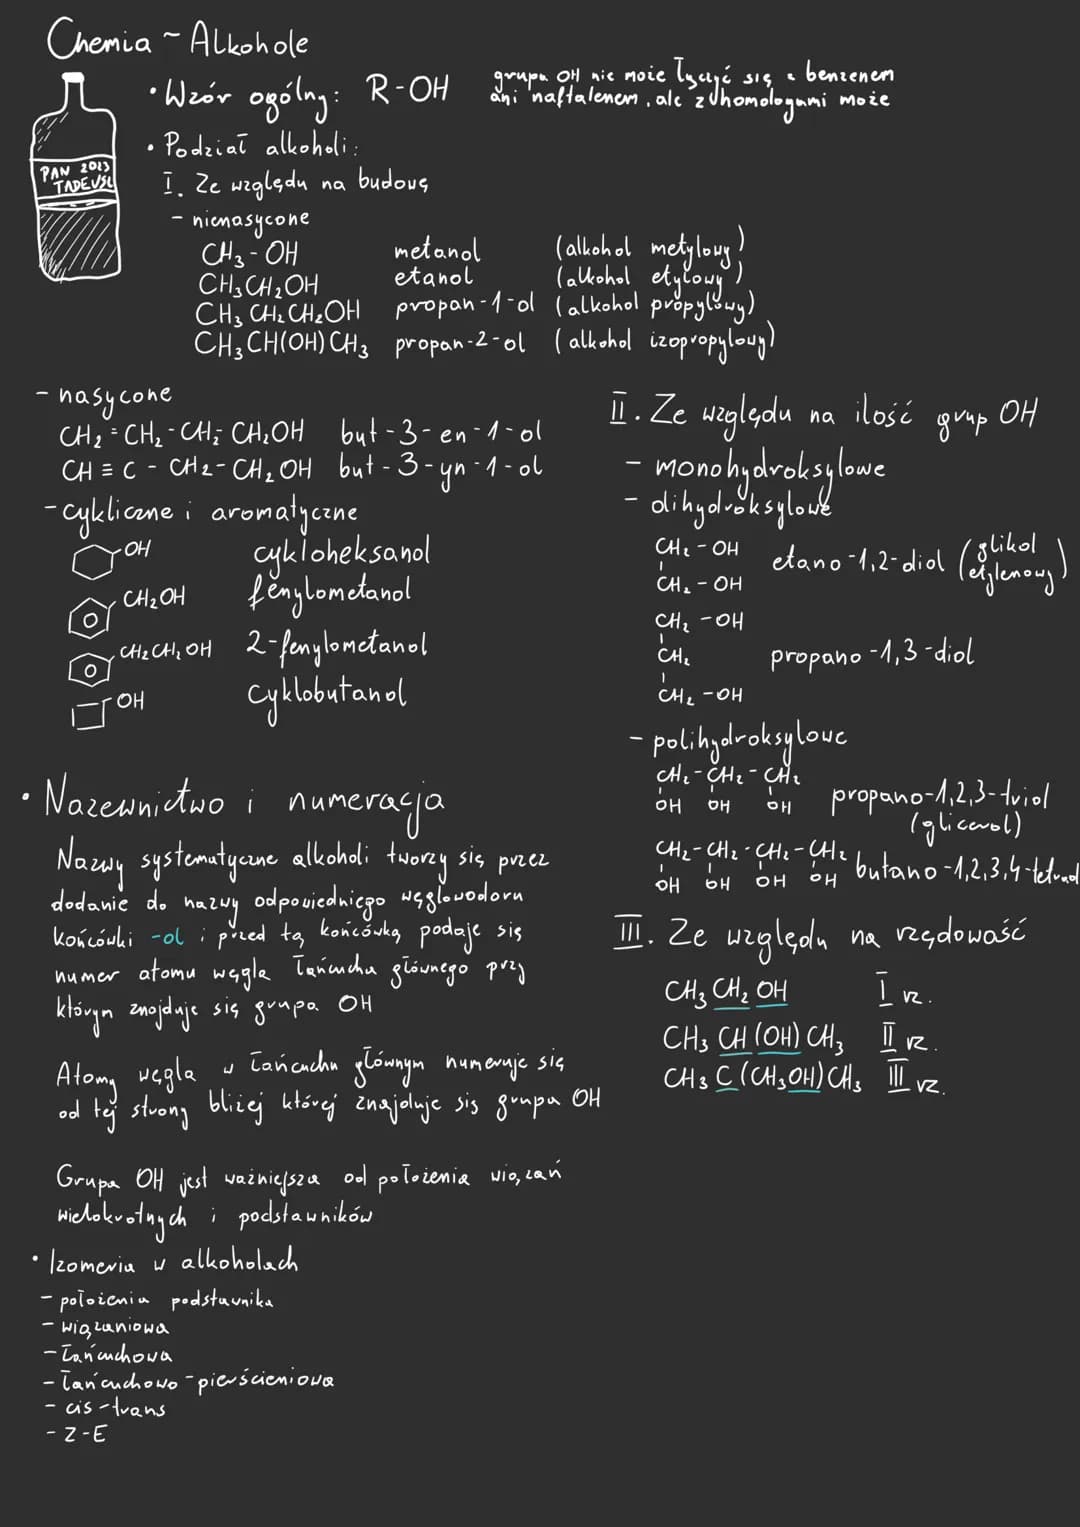 Chemia ~ Alkohole
PAN 2023
TADEUSZ
• Wzór ogólny: R-OH
grupa OH nie może łączyć się z benzenem
ani naftalenem, ale z homologami może
• Podział alkoholi:
I. Ze względu na budowę
- nienasycone
CH₃-OH metanol (alkohol metylowy)
CH₃CH₂OH etanol (alkohol etylowy)
CH₃CH₂CH₂OH propan-1-ol (alkohol propylowy)
CH₃CH(OH)CH₃ propan-2-ol (alkohol izopropylowy)
- nasycone
CH₂=CH₂-CH₂-CH₂OH but-3-en-1-ol
CH≡C-CH₂-CH₂OH but-3-yn-1-ol
- cykliczne i aromatyczne
OH cykloheksanol
CH₂OH fenylometanol
CH₂CH₂OH 2-fenylometanol
OH cyklobutanol
II. Ze względu na ilość grup OH
- monohydroksylowe
- dihydroksylowe
CH₂-OH
CH₂-OH
etano-1,2-diol (glikol etylenowy)
CH₂-OH
CH₂
CH₂-OH
propano-1,3-diol
- polihydroksylowe
CH₂-CH₂-CH₂
OH OH OH
propano-1,2,3-triol
(glicerol)
CH₂-CH₂-CH₂-CH₂
OH OH OH OH
butano-1,2,3,4-tetraol
III. Ze względu na rzędowość
CH₃CH₂OH I rz.
CH₃CH(OH)CH₃ II rz.
CH₃C(CH₃OH)CH₃ III rz.
• Nazewnictwo i numeracja
Nazwy systematyczne alkoholi tworzy się przez
dodanie do nazwy odpowiedniego węglowodoru
końcówki -ol i przed tą końcówką podaje się
numer atomu węgla łańcucha głównego przy
którym znajduje się grupa OH
Atomy węgla w łańcuchu głównym numeruje się
od tej strony bliżej której znajduje się grupa OH
Grupa OH jest ważniejsza od położenia wiązań
wielokrotnych i podstawników
• Izomeria w alkoholach
- położenia podstawnika
- wiązaniowa
- łańcuchowa
- łańcuchowo-pierścieniowa
- cis-trans
- Z-E